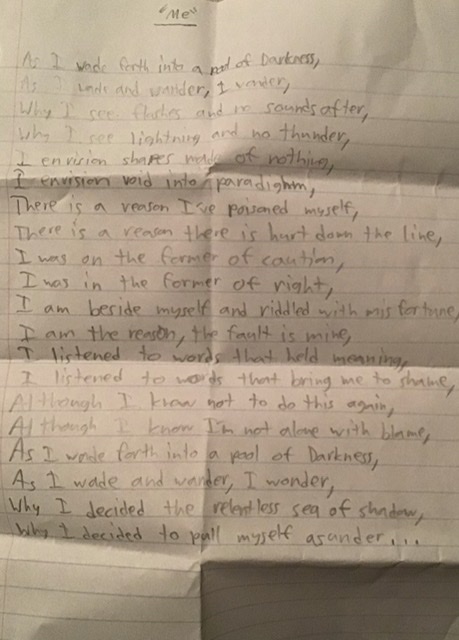 "Me"
As I wade forth into a pool of Darkness,
As I wade and wander, I wonder,
Why I see flashes and no sounds after,
Why I see lightning and no thunder,
I envision shapes made of nothing,
I envision void into paradighm,
There is a reason I've poisoned myself,
There is a reason there is hurt down the line,
I was on the former of caution,
I was in the former of right,
I am beside myself and riddled with misfortune,
I am the reason, the fault is mine,
I listened to words that held meaning,
I listened to words that bring me to shame,
Although I know not to do this again,
Although I know I'm not alone with blame,
As I wade forth into a pool of Darkness,
As I wade and wander, I wonder,
Why I decided the relentless sea of shadow,
Why I decided to pull myself asunder...